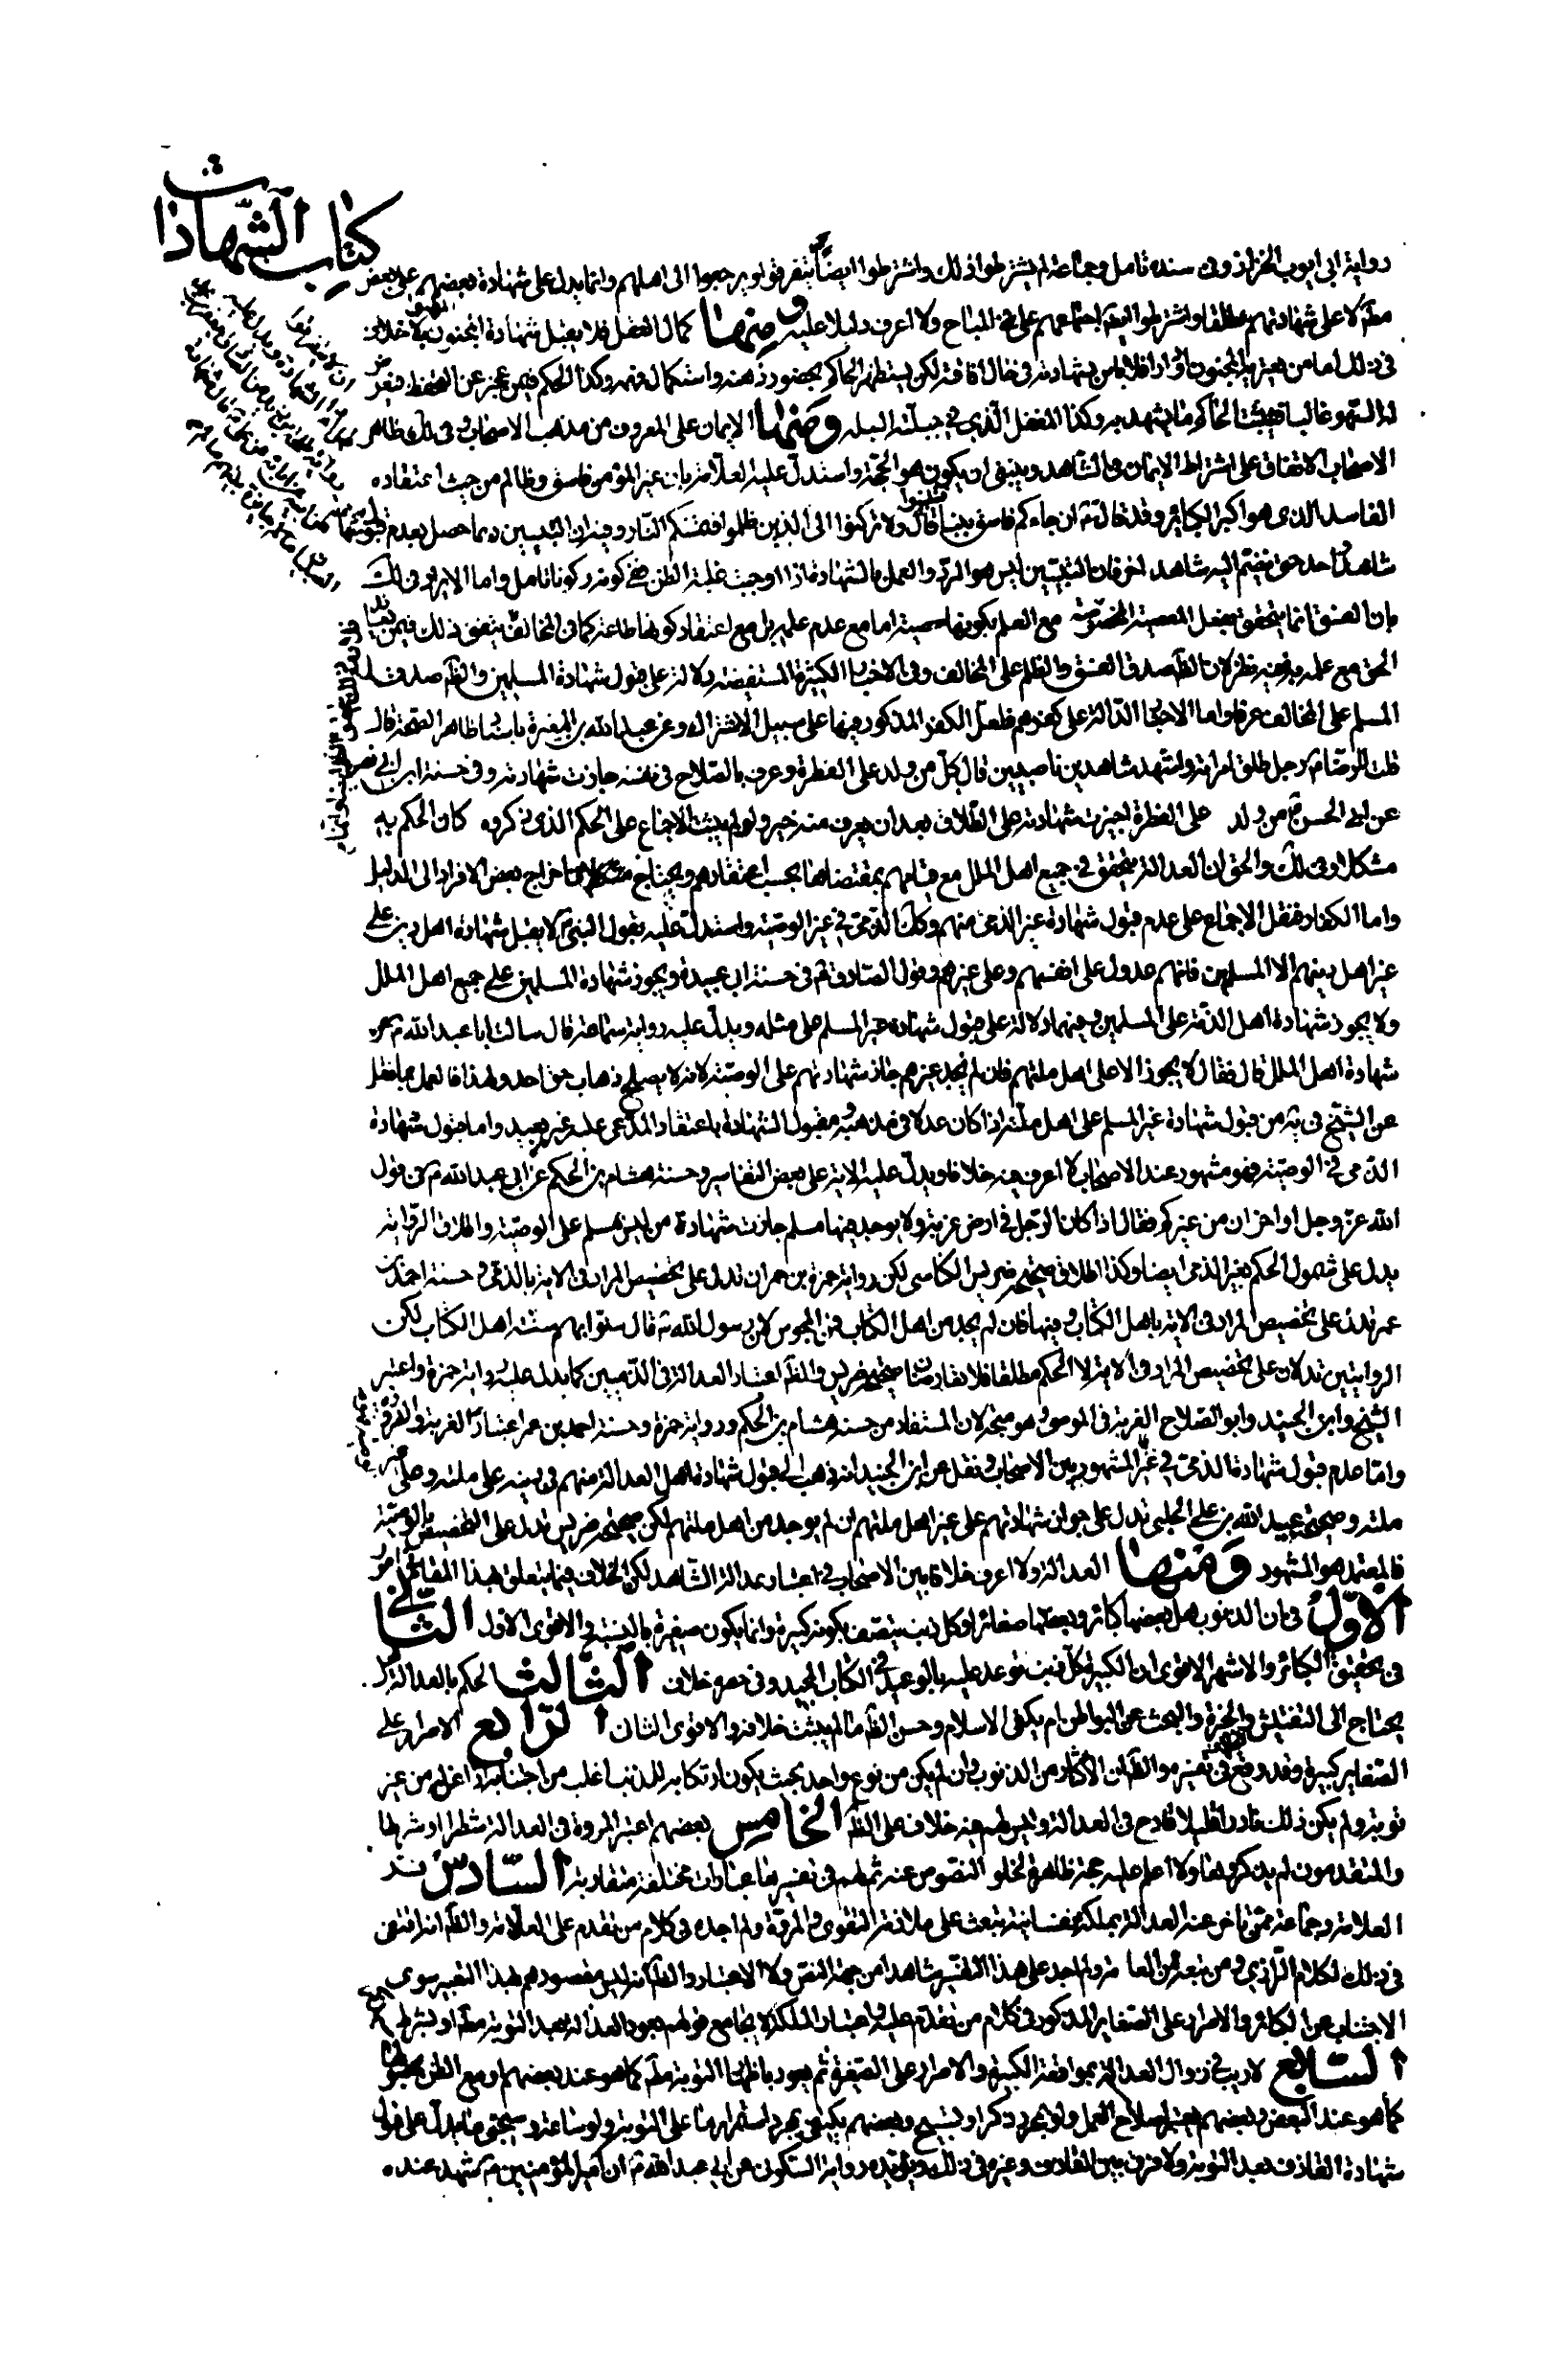 كتاب الشهادات
رواية ابى ايوب الخزاز وفى سنده تامل وجماعة لم يشترطوا ذلك واشترطوا ايضا ان لا يتفرقوا او يرجعوا الى اهلهم وانما يدل على شهادة بعضهم على بعض
لا على شهادتهم مطلقا واشترطوا ايضا اجتماعهم على المباح ولا اعرف دليلا عليه ومنها كمال العقل فلا يقبل شهادة المجنون بلا خلاف
فى ذلك اما من يعتريه الجنون ادوارا فلا باس بشهادته فى حال افاقته لكن يستظهر الحاكم بحضور ذهنه واستكمال فهمه وكذا الحكم فيمن عجز عن التحفظ
السهو غالبا فيثبت الحاكم ما يشهد به وكذا المغفل الذى فى جبلته البله ومنها الايمان على المعروف من مذهب الاصحاب وفى لك ظاهر
الاصحاب الاتفاق على اشتراط الايمان فى الشاهد وينبغى ان يكون هو الحجة واستدل عليه العلامة بان غير المؤمن فاسق وظالم من حيث اعتقاده
الفاسد الذى هو اكبر الكباير وقد قال تع ان جاءكم فاسق بنبأ فتبينوا وقال ولا تركنوا الى الذين ظلموا فتمسكم النار وفيه ان التبيين ربما حصل بعدم قبول
شاهد واحد حتى يضم اليه شاهد اخر فان التبيين ليس هو الرد والعمل بالشهادة اذا اوجبت غلبة الظن فى كونه ركونا تامل واما الايراد فى لك
بان الفسق انما يتحقق بفعل المعصية المخصوصة مع العلم بكونها معصية اما مع عدم علمه بل مع اعتقاد كونها طاعة كما فى المخالف يتفق ذلك فيمن يعاند
الحق مع علمه به ففيه نظر لان الظ صدق الفسق والظلم على المخالف وفى الاخبار الكثيرة المستفيضة دلالة على قبول شهادة المسلمين والظ صدق
المسلم على المخالف عرفا واما الاخبار الدالة على كفرهم فلعل الكفر المذكور فيها على سبيل الاشتراك وعن عبد الله بن المغيرة باسناد ظاهر الصحة قال
قلت للرضا ع رجل طلق امراته واشهد شاهدين ناصبيين قال كل من ولد على الفطرة وعرف بالصلاح فى نفسه جازت شهادته وفى حسنة ابن ابى نصر
عن ابى الحسن ع من ولد على الفطرة اجيزت شهادته على الطلاق بعد ان يعرف منه خير ولو لم يثبت الاجماع على الحكم الذى ذكروه كان الحكم به
مشكلا وفى لك والحق ان العدالة يتحقق فى جميع اهل الملل مع قيامهم بمقتضاها بحسب اعتقادهم ويحتاج اخراج بعض الافراد الى الدليل
واما الكفار فنقل الاجماع على عدم قبول شهادة غير الذمى منهم وكذا الذمى فى غير الوصية واستدل عليه بقول النبى ص لا يقبل شهادة اهل دين على
غير اهل دينهم الا المسلمين فانهم عدول على انفسهم وعلى غيرهم وقول الصادق ع فى حسنة ابى عبيدة ويجوز شهادة المسلمين على جميع اهل الملل
ولا يجوز شهادة اهل الذمة على المسلمين وفيهما دلالة على قبول شهادة غير المسلم على مثله ويدل عليه رواية سماعة قال سالت ابا عبد الله ع عن
شهادة اهل الملل قال فقال لا يجوز الا على اهل ملتهم فان لم نجد غيرهم جازت شهادتهم على الوصية لانه لا يصلح ذهاب حق احد ولهذا فالعمل بما نقل
عن الشيخ فى يه من قبول شهادة غير المسلم على اهل ملته اذا كان عدلا فى مذهبه ومقبول الشهادة باعتقاد المدعى عليه غير بعيد واما قبول شهادة
الذمى فى الوصية فهو مشهور عند الاصحاب لا اعرف فيه خلافا ويدل عليه الاية على بعض التفاسير وحسنة هشام بن الحكم عن ابى عبد الله ع فى قول
الله عز وجل او اخران من غيركم فقال اذا كان الرجل فى ارض غربة ولا يوجد فيها مسلم جازت شهادة من ليس بمسلم على الوصية واطلاق الرواية
يدل على شمول الحكم بغير الذمى ايضا وكذا اطلاق صحيحة ضريس الكناسى لكن رواية حمزة بن حمران تدل على تخصيص المراد فى الاية بالذمى وحسنة احمد بن
عمر تدل على تخصيص المراد فى الاية باهل الكتاب وفيها فان لم يجد من اهل الكتاب فمن المجوس لان رسول الله ص قال سنوا بهم سنة اهل الكتاب لكن
الروايتين تدلان على تخصيص المراد فى الاية لا الحكم مطلقا فلا يعارضان صحيحة ضريس والظ اعتبار العدالة فى الذميين كما يدل عليه رواية حمزة واعتبر
الشيخ وابن الجنيد وابو الصلاح الغربة فى الموصى وهو متجه لان المستفاد من حسنة هشام بن الحكم ورواية حمزة وحسنة احمد بن عمر اعتبار الغربة والضرورة
واما عدم قبول شهادة الذمى فى غير المشهور بين الاصحاب ونقل عن ابن الجنيد انه ذهب الى قبول شهادة اهل العدالة منهم فى دينه على ملته وعلى غير
ملته وصحيحة عبيد الله بن على الحلبى تدل على جواز شهادتهم على غير اهل ملتهم ان لم يوجد من اهل ملتهم لكن صحيحة ضريس تدل على التخصيص بالوصية
فالمعتمد هو المشهور ومنها العدالة ولا اعرف خلافا بين الاصحاب فى اعتبار عدالة الشاهد لكن الخلاف فيما يتعلق بهذا المقام فى امور
الاول فى ان الذنوب هل بعضها كبائر وبعضها صغائر او كل ذنب يتصف بكونه كبيرة وانما يكون صغيرة بالنسبة والاقوى الاول الثانى
فى تحقيق الكبائر والاشهر الاقوى ان الكبيرة كل ذنب توعد عليه بالوعيد فى الكتاب المجيد وفى حصره خلاف الثالث الحكم بالعدالة
يحتاج الى التفتيش والخبرة والبحث عن البواطن ام يكفى الاسلام وحسن الظ ما لم يثبت خلافه والاقوى الثانى الرابع الاصرار على
الصغاير كبيرة وقد وقع فى تفسيره والظ ان الاكثار من الذنوب وان لم يكن من نوع واحد بحيث يكون ارتكابه للذنب اغلب من اجتنابه اذا عن له من غير
توبة ولم يكن ذلك نادرا قليلا قادح فى العدالة وليس لهم فيه خلاف على الظ الخامس بعضهم اعتبر المروة فى العدالة شطرا او شرطا
والمتقدمون لم يذكروها ولا اعلم عليه حجة ظاهرة لخلو النصوص عنه ثم لهم فى تفسيرها عبارات مختلفة متقاربة السادس
العلامة وجماعة ممن تاخر عنه العدالة بملكة نفسانية تبعث على ملازمة التقوى والمروة ولم اجده فى كلام من تقدم على العلامة والظ انه اقتفى
فى ذلك لكلام الرازى ومن تبعه من العامة ولم اجد على هذا التفسير شاهدا من جهة النص ولا الاعتبار والظ انه ليس مقصودهم بهذا التعبير سوى
الاجتناب عن الكبائر والاصرار على الصغاير المذكور فى كلام من تقدم عليه واعتبار الملكة لا يجامع قولهم بعود العدالة بعد التوبة مط او بشرط
السابع لا ريب فى زوال العدالة بمواقعة الكبيرة والاصرار على الصغيرة ثم يعود باظهار التوبة مط كما هو عند بعضهم او مع الظن
كما هو عند البعض وبعضهم يعتبر اصلاح العمل ولو بمجرد ذكر او تسبيح وبعضهم يكتفى بمجرد استمراره على التوبة ولو ساعة وسيجئ ما يدل على قبول
شهادة القاذف بعد التوبة ولا فرق بين القاذف وغيره فى ذلك ويؤيده رواية السكونى عن ابى عبد الله ع ان امير المؤمنين ع شهد عنده